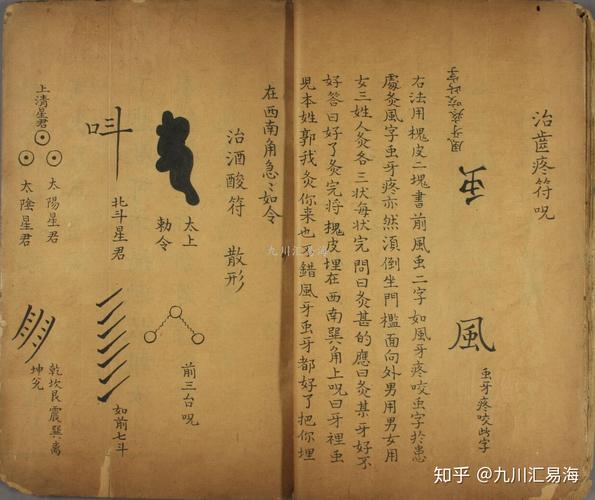 治齒疼符呪
虫
風牙疼咬此字
風
虫牙疼咬此字
右法用槐皮二塊書前風虫二字如風牙疼咬虫字於患
處灸風字虫牙疼亦然湏倒坐門檻面向外男用男女用
女三姓人灸各三状每状完問曰灸甚的應曰灸某牙好不
好答曰好了灸完将槐皮埋在西南巽角上呪曰牙裡虫
児本姓郭我灸你来也不錯風牙虫牙都好了把你埋
在西南角急〻如令
治酒酸符 散形
太上
勅令
前三台呪
北斗星君
如前七斗
上清星君
太陽星君
太陰星君
乾坎艮震巽离
坤兌
九川汇易海
知乎 @九川汇易海